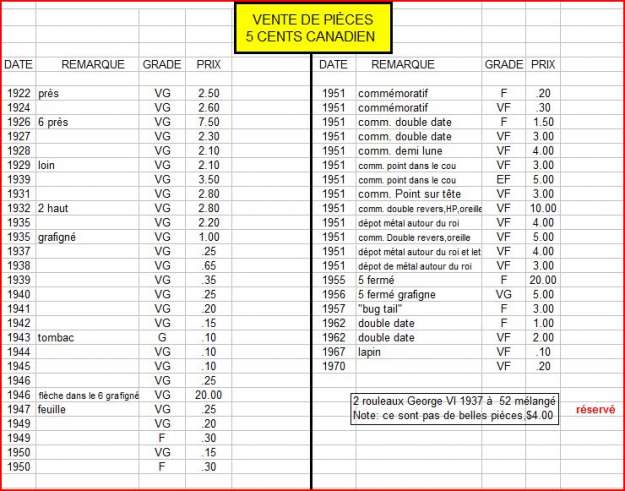 VENTE DE PIÈCES
5 CENTS CANADIEN
DATE REMARQUE GRADE PRIX
1922 près VG 2.50
1924 VG 2.60
1926 6 près VG 7.50
1927 VG 2.30
1928 VG 2.10
1929 loin VG 2.10
1939 VG 3.50
1931 VG 2.80
1932 2 haut VG 2.80
1935 VG 2.20
1935 grafigné VG 1.00
1937 VG .25
1938 VG .65
1939 VG .35
1940 VG .25
1941 VG .20
1942 VG .15
1943 tombac G .10
1944 VG .10
1945 VG .10
1946 VG .25
1946 flèche dans le 6 grafigné VG 20.00
1947 feuille VG .25
1949 VG .20
1949 F .30
1950 VG .15
1950 F .30
DATE REMARQUE GRADE PRIX
1951 commémoratif F .20
1951 commémoratif VF .30
1951 comm. double date F 1.50
1951 comm. double date VF 3.00
1951 comm. demi lune VF 4.00
1951 comm. point dans le cou VF 3.00
1951 comm. point dans le cou EF 5.00
1951 comm. Point sur tête VF 3.00
1951 comm. double revers,HP,oreille VF 10.00
1951 dépot métal autour du roi VF 4.00
1951 comm. Double revers,oreille VF 5.00
1951 dépot métal autour du roi et let VF 4.00
1951 dépot de métal autour du roi VF 3.00
1955 5 fermé F 20.00
1956 5 fermé grafigne VG 5.00
1957 "bug tail" F 3.00
1962 double date F 1.00
1962 double date VF 2.00
1967 lapin VF .10
1970 VF .20
2 rouleaux George VI 1937 à 52 mélangé
Note: ce sont pas de belles pièces,$4.00
réservé